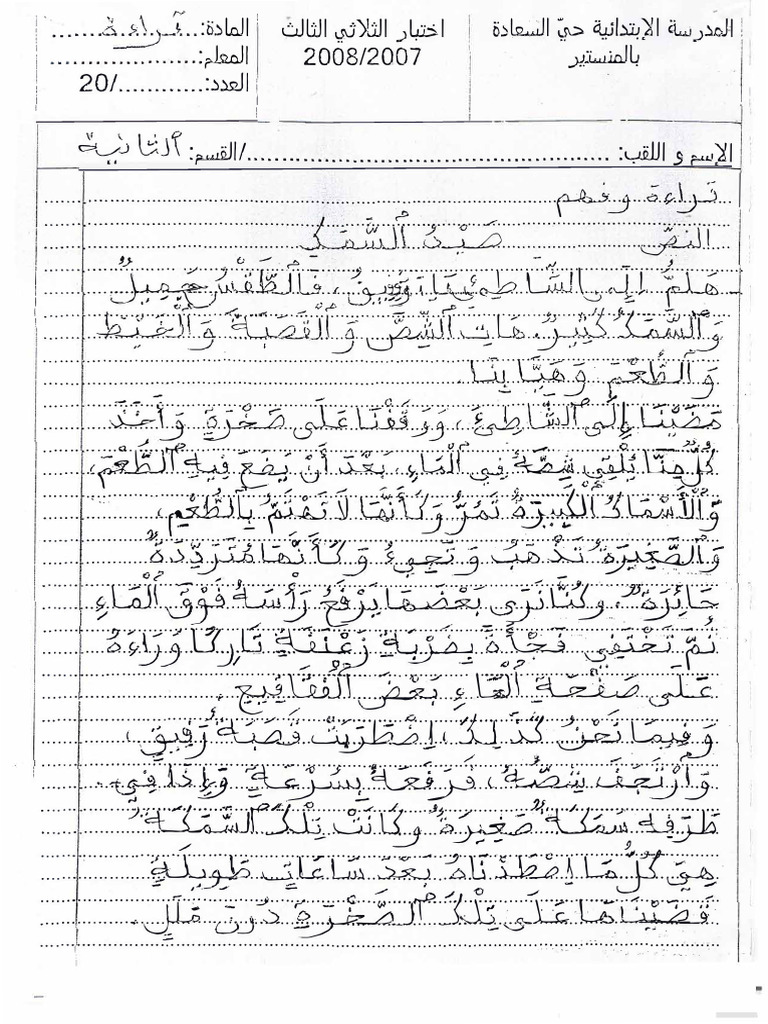 المدرسة الإبتدائية حيّ السعادة بالمنستير
اختبار الثلاثي الثالث 2008/2007
المادة: قراءة
المعلم:
العدد: ............/20
الإسم و اللقب: ................................................/القسم: الثانية
قراءة وفهم
النصّ صَيْدُ السَّمَكِ
هَلُمَّ إِلَى الشَّاطِئِ يَا رَفِيقُ، فَالطَّقْسُ جَمِيلٌ
وَالسَّمَكُ كَثِيرٌ. هَاتِ الشِّصَّ وَالْقَصَبَةَ وَالْخَيْطَ
وَالطُّعْمَ وَهَيَّا بِنَا.
مَضَيْنَا إِلَى الشَّاطِئِ، وَوَقَفْنَا عَلَى صَخْرَةٍ وَأَخَذَ
كُلٌّ مِنَّا يُلْقِي شِصَّهُ فِي الْمَاءِ، بَعْدَ أَنْ يَضَعَ فِيهِ الطُّعْمَ،
وَالْأَسْمَاكُ الْكَبِيرَةُ تَمُرُّ وَكَأَنَّهَا لَا تَهْتَمُّ بِالطُّعْمِ،
وَالصَّغِيرَةُ تَذْهَبُ وَتَجِيءُ وَكَأَنَّهَا مُتَرَدِّدَةٌ
حَائِرَةٌ، وَكُنَّا نَرَى بَعْضَهَا يَرْفَعُ رَأْسَهُ فَوْقَ الْمَاءِ
ثُمَّ تَخْتَفِي فَجْأَةً بِضَرْبَةِ زَعْنَفَةٍ تَارِكًا وَرَاءَهُ
عَلَى صَفْحَةِ الْمَاءِ بَعْضَ الْفَقَاقِيعِ.
وَفِيمَا نَحْنُ كَذَلِكَ، اِضْطَرَبَتْ قَصَبَةُ رَفِيقِي،
وَارْتَجَفَ شِصُّهُ، فَرَفَعَهُ بِسُرْعَةٍ وَإِذَا فِي
طَرَفِهِ سَمَكَةٌ صَغِيرَةٌ وَكَانَتْ تِلْكَ السَّمَكَةُ
هِيَ كُلُّ مَا اِصْطَدْنَاهُ بَعْدَ سَاعَاتٍ طَوِيلَةٍ
قَضَيْنَاهَا عَلَى تِلْكَ الصَّخْرَةِ دُونَ مَلَلٍ.